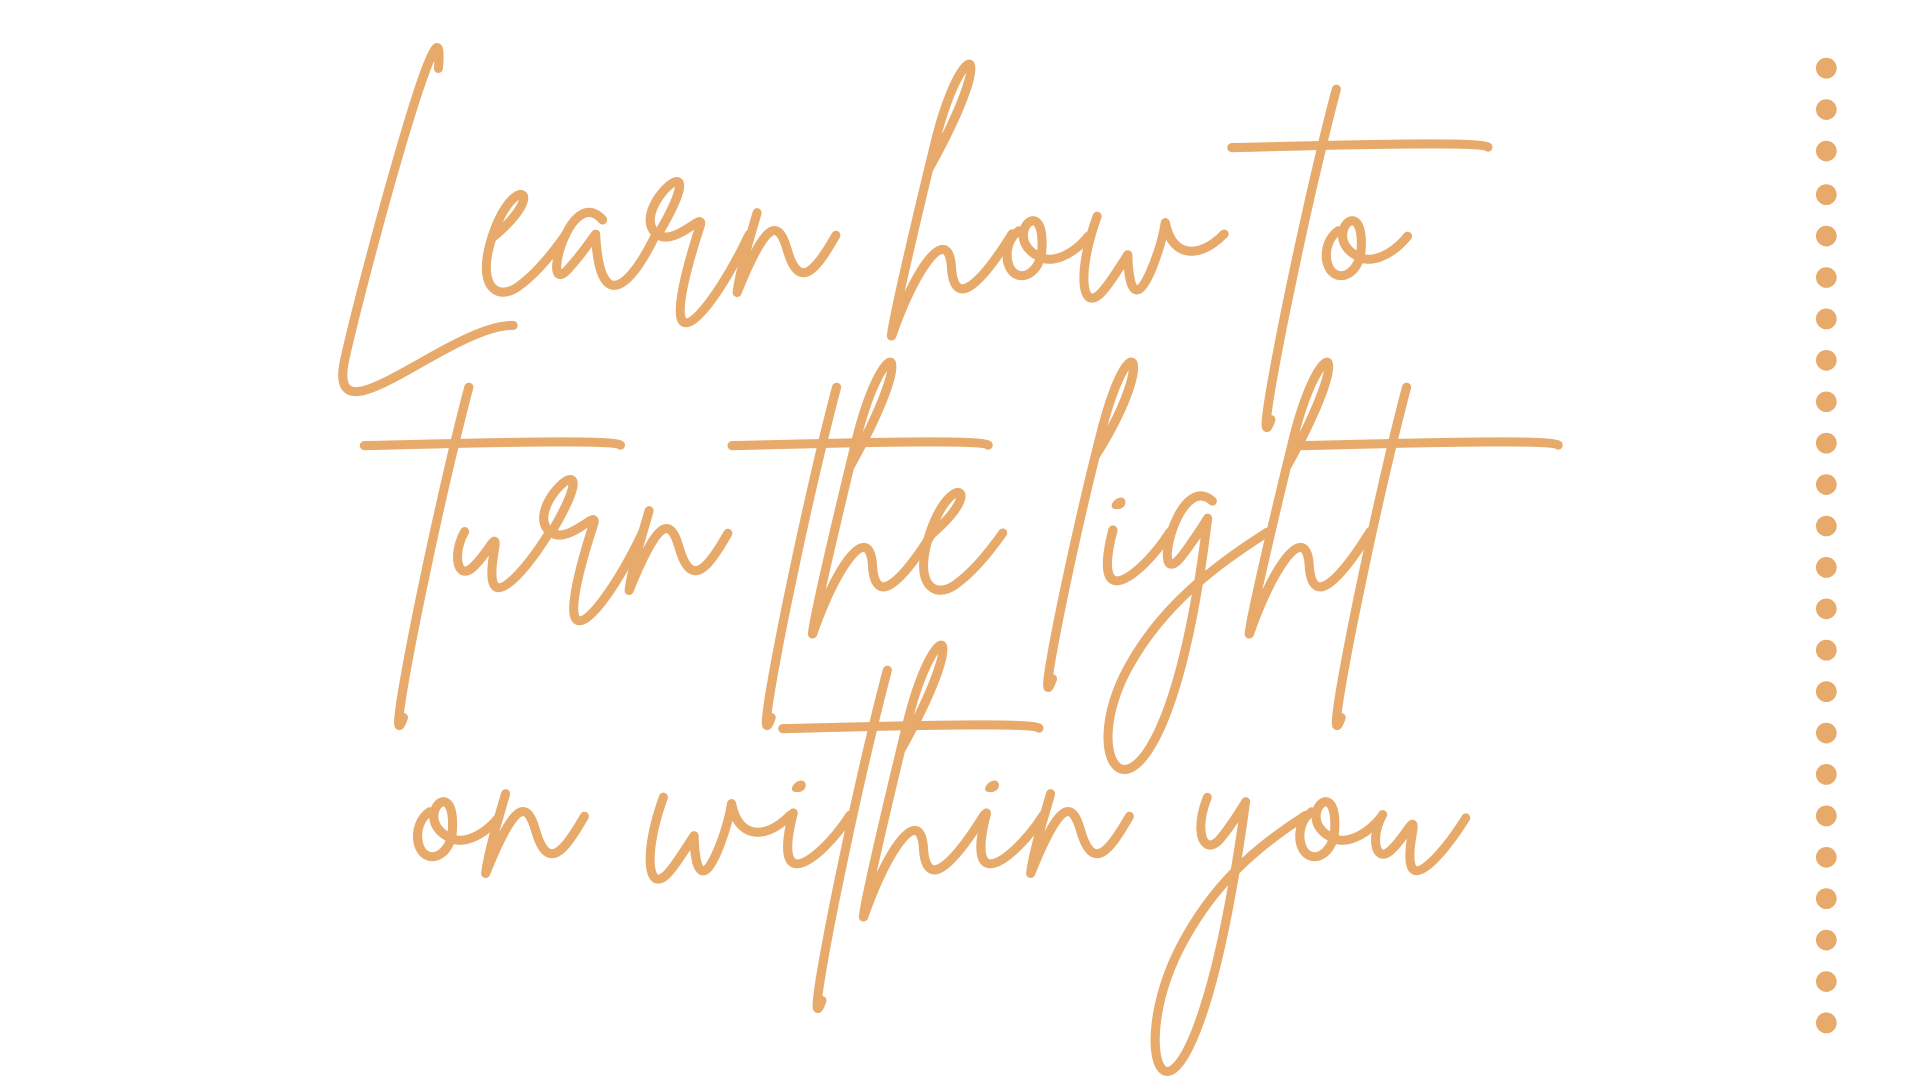 Learn how to
turn the light
on within you